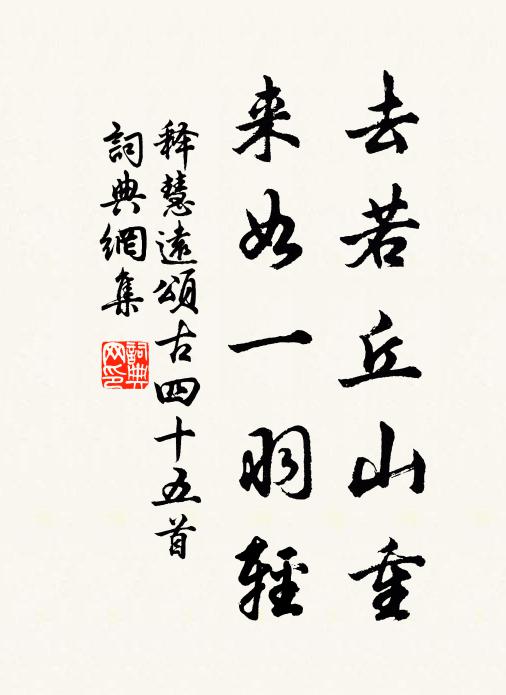 去若丘山重
来如一羽輕
释慧遠頌古四十五首
詞典網集
詞典网印